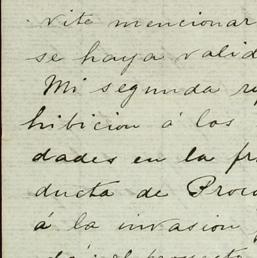 vite mencionar
se haya valid
Mi segunda re
hibicion á los
dades en la pr
ducta de Proc
á la invasion
dá el proyecto